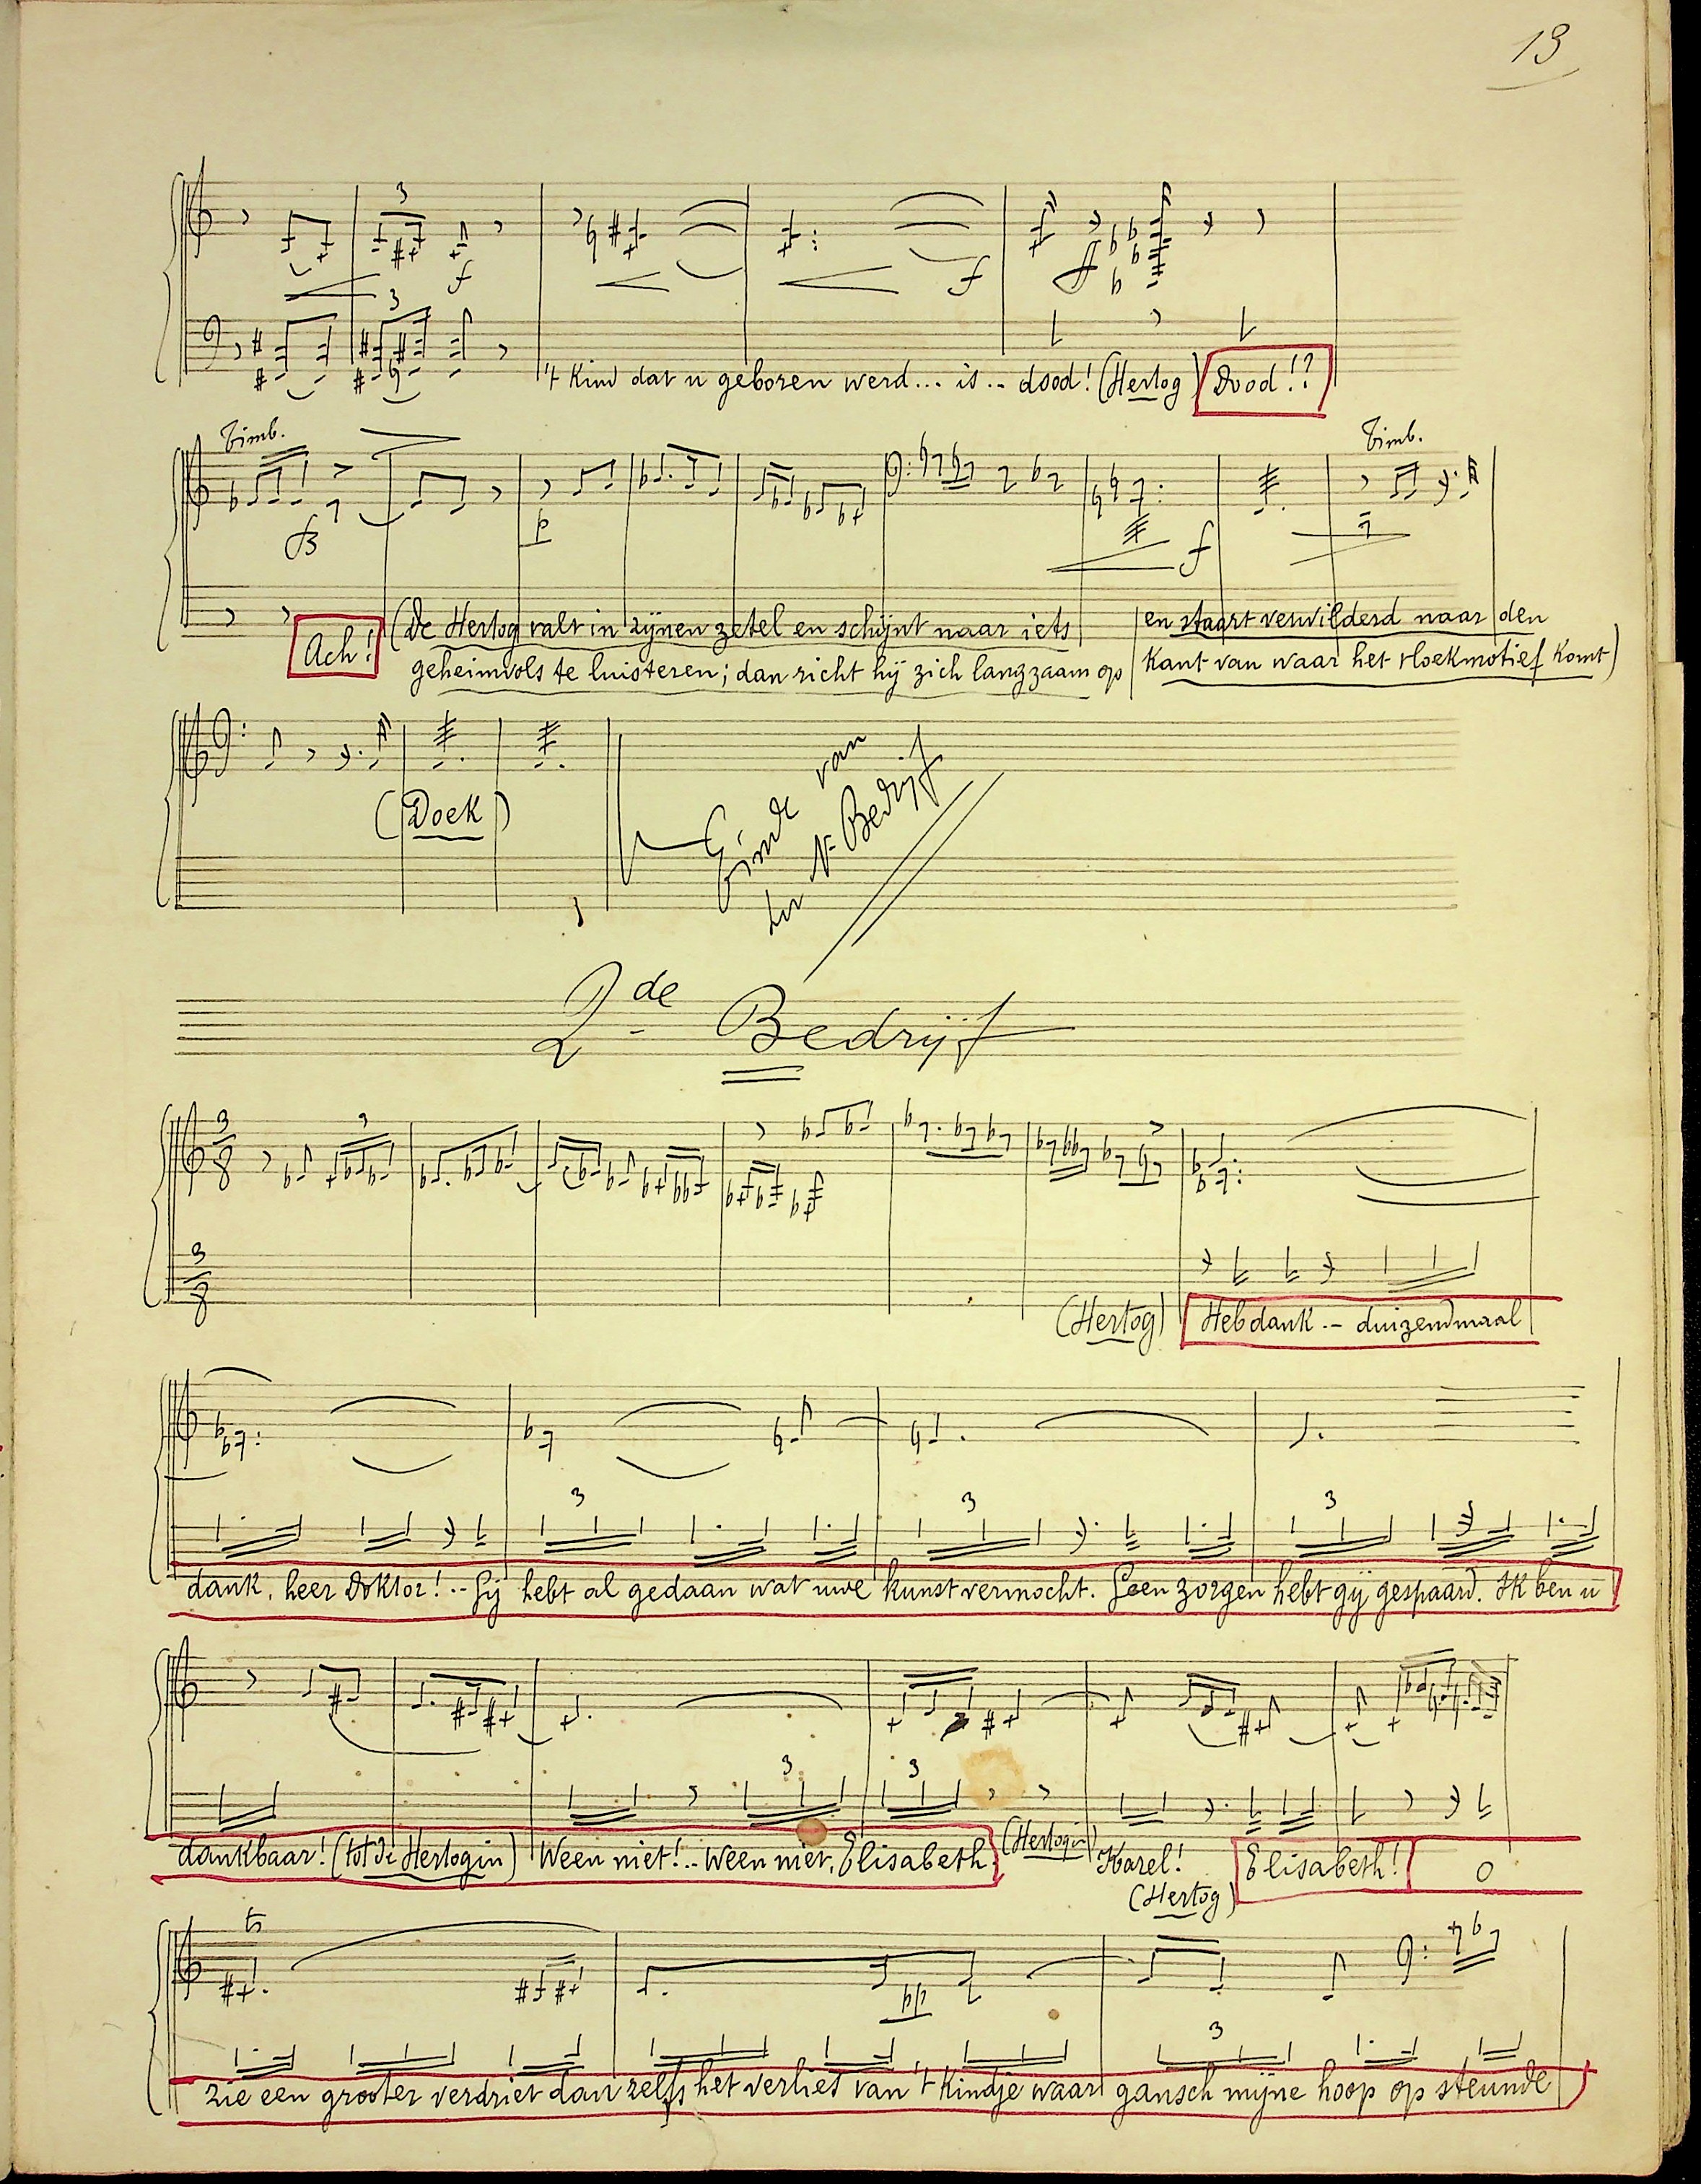 13
't Kind dat u geboren werd... is .. dood! (Hertog) Dood!?
Timb.
Timb.
Ach! (De Hertog valt in zijnen zetel en schijnt naar iets en staart verwilderd naar den
geheimvols te luisteren; dan richt hij zich langzaam op kant van waar het Hoekmotief komt)
(Doek)
Einde van
Bedrijf
2de Bedrijf
(Hertog) Heb dank .- duizendmaal
dank, heer Doktor! .. Gij hebt al gedaan wat uwe kunst vermocht. Geen zorgen hebt gij gespaard. Ik ben u
dankbaar! (tot de Hertogin) Ween niet! .. Ween niet, Elisabeth. (Hertogin) Karel! Elisabeth! o
(Hertog)
zie een grooter verdriet dan zelfs het verlies van 't Kindje waar gansch mijne hoop op steunde